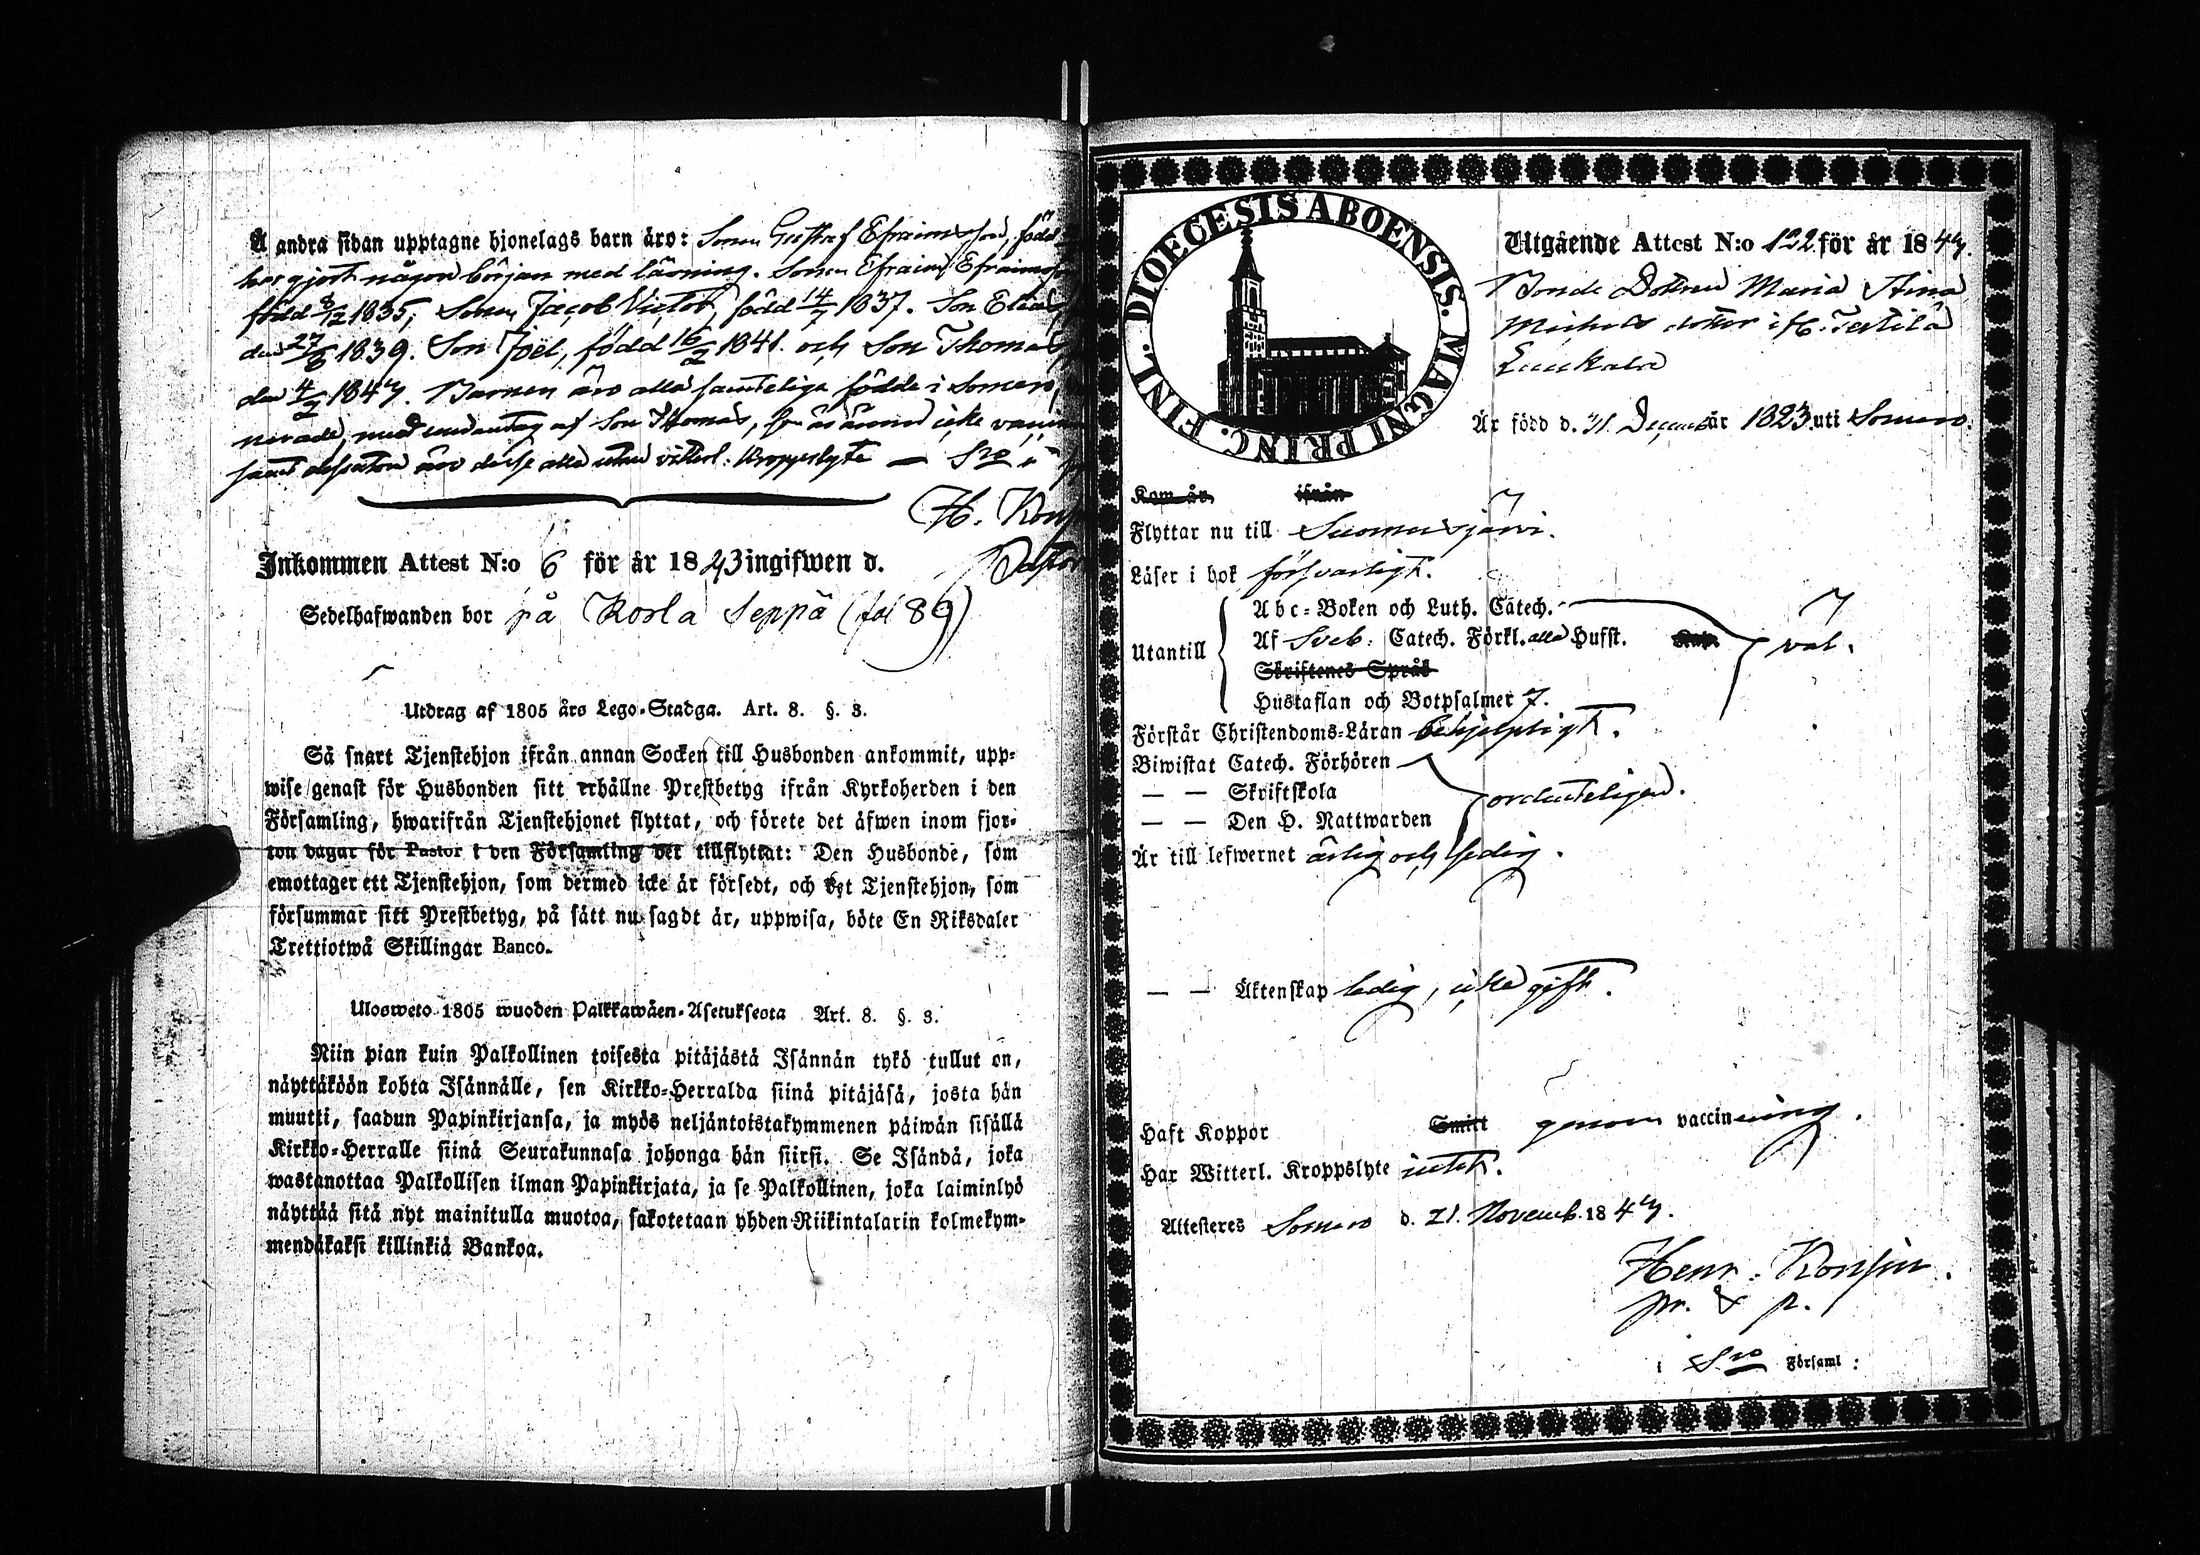 Å andra sidan upptagne hjonelags barn äro: Sonen Gustaf Efraimsson, född
har gjort någon början med läsning. Sonen Efraim Efraimss
född 8/2 1835; Sonen Jacob Victor, född 14/7 1837. Son Elias,
den 27/6 1839. Son Joël, född 16/2 1841. och Son Thomas
den 4/2 1843. Barnen äro alla samteliga födde i Somero,
nerade, med undantag af Son Thomas, som är ännu icke vaccin
samt dessutom äro desse alla utan vitterl. Kroppslyte — Sro i
H. Kons
Pastor
Inkommen Attest N:o 6 för år 1843 ingifwen d.
Sedelhafwanden bor på Korla Seppä (fol 89)
Utdrag af 1805 års Lego-Stadga. Art. 8. §. 3.
Så snart Tjenstehjon ifrån annan Socken till Husbonden ankommit, upp-
wise genast för Husbonden sitt erhållne Prestbetyg ifrån Kyrkoherden i den
Församling, hwarifrån Tjenstehjonet flyttat, och förete det äfwen inom fjor-
ton dagar för Pastor i den Församling det tillflyttat: Den Husbonde, som
emottager ett Tjenstehjon, som dermed icke är försedt, och det Tjenstehjon, som
försummar sitt Prestbetyg, på sätt nu sagdt är, uppwisa, böte En Riksdaler
Trettiotwå Skillingar Banco.
Ulosweto 1805 wuoden Palkkawäen-Asetuksesta Art. 8. §. 3.
Niin pian kuin Palkollinen toisesta pitäjästä Isännän tykö tullut on,
näyttäköön kohta Isännälle, sen Kirkko-Herralda siinä pitäjäsä, josta hän
muutti, saadun Papinkirjansa, ja myös neljäntoistakymmenen päiwän sisällä
Kirkko-Herralle siinä Seurakunnasa johonga hän siirsi. Se Isändä, joka
wastanottaa Palkollisen ilman Papinkirjata, ja se Palkollinen, joka laiminlyö
näyttää sitä nyt mainitulla muotoa, sakotetaan yhden Riikintalarin kolmekym-
mendäkaksi killinkiä Bankoa.
DIOECESIS ABOENSIS. MAGNI PRINC. FINL.
Utgående Attest N:o 122 för år 1843.
Bonde Dottren Maria Stina
Michels dotter i H. Terttilä
Är född d. 31. Decemb. år 1823. uti Somero.
Kom år ifrån
Flyttar nu till Suomusjärvi.
Läser i bok försvarligt.
Utantill
Abc-Boken och Luth. Catech.
Af Sveb: Catech. Förkl. alla Hufst. Kap. väl.
Skriftenes Språk
Hustaflan och Botpsalmer 7.
Förstår Christendoms-Läran behjelpligt.
Biwistat Catech. Förhören
— — Skriftskola ordenteligen.
— — Den H. Nattwarden
Är till lefwernet ärlig och sedig.
— — Äktenskap ledig, icke gift.
Haft Koppor Smitt genom vaccinering.
Har Witterl. Kroppslyte intet.
Attesteres Somero d. 21. Novemb. 1843.
Henr. Konsin.
pr. & p.
i Sro Församl: